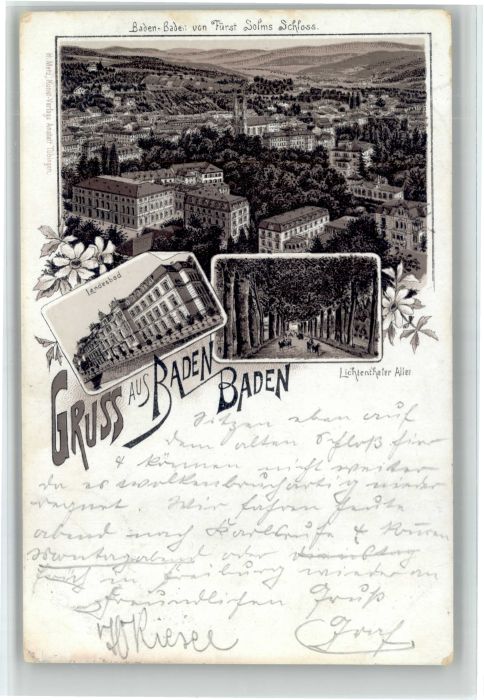 Baden-Baden von Fürst Solms Schloss.
H. Metz, Kunst-Verlags Anstalt Tübingen.
Landesbad
Lichtenthaler Allee
GRUSS AUS BADEN BADEN
Sitzen eben auf
dem alten Schloß hier
& können nicht weiter
da es wolkenbruchartig nieder
regnet. Wir fahren heute
abend nach Karlsruhe & kommen
Montagabend oder Dienstag
früh in Freiburg wieder an
Freundlichen Gruß
Kiesel Graf